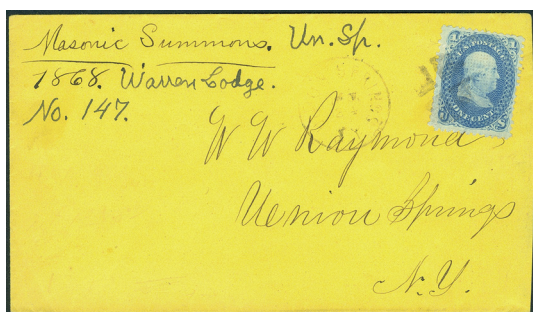 Masonic Summons. Un. Sp.
1868. Warren Lodge.
No. 147.
U.S. POSTAGE
ONE CENT
W W Raymond
Uenion Springs
N.Y.